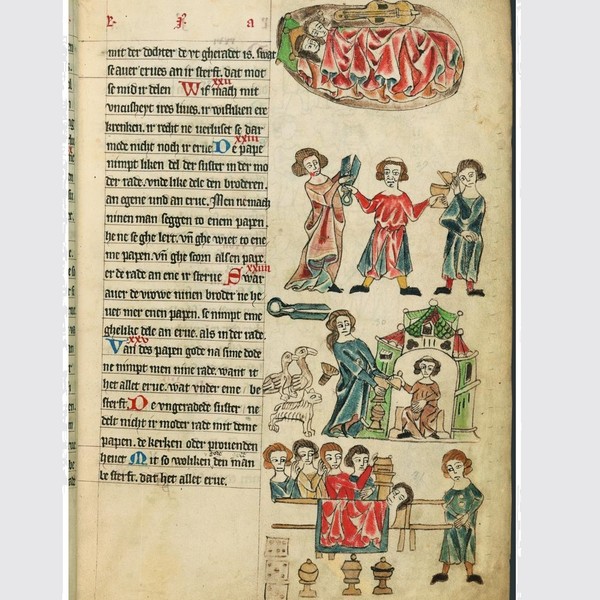 mit der dochter de vt gheradet is. swat
se auer erues an ir sterft. dat mot
xxii
se mid ir delen Wif mach mit
vncuscheyt ires liues. ir wifliken ere
krenken. ir recht ne verluset se dar
xxiii
mede nicht noch ir erue De pape
nimpt liken del der suster in der mo
der rade. vnde like dele den broderen.
an egene und an erue. Men ne mach
ninen man seggen to enem papen.
he ne se ghe lert. vn̄ ghe wiet to ene
me papen. vn̄ ghe scorn alsen pape
xxiiii
er de rade an ene ir sterue Swar
auer de vrowe ninen broder ne he
uet mer enen papen. se nimpt eme
ghelike dele an erue. als in der rade.
xxv
Van des papen gode na sime dode
ne nimpt men nine rade. want it
het allet erue. wat vnder eme be
sterft. De vngeradede suster ne
delt nicht ir moder rade mit deme
papen. de kerken oder prouenden
heuet Mit so woliken den man
be sterft. dat het allet erue.